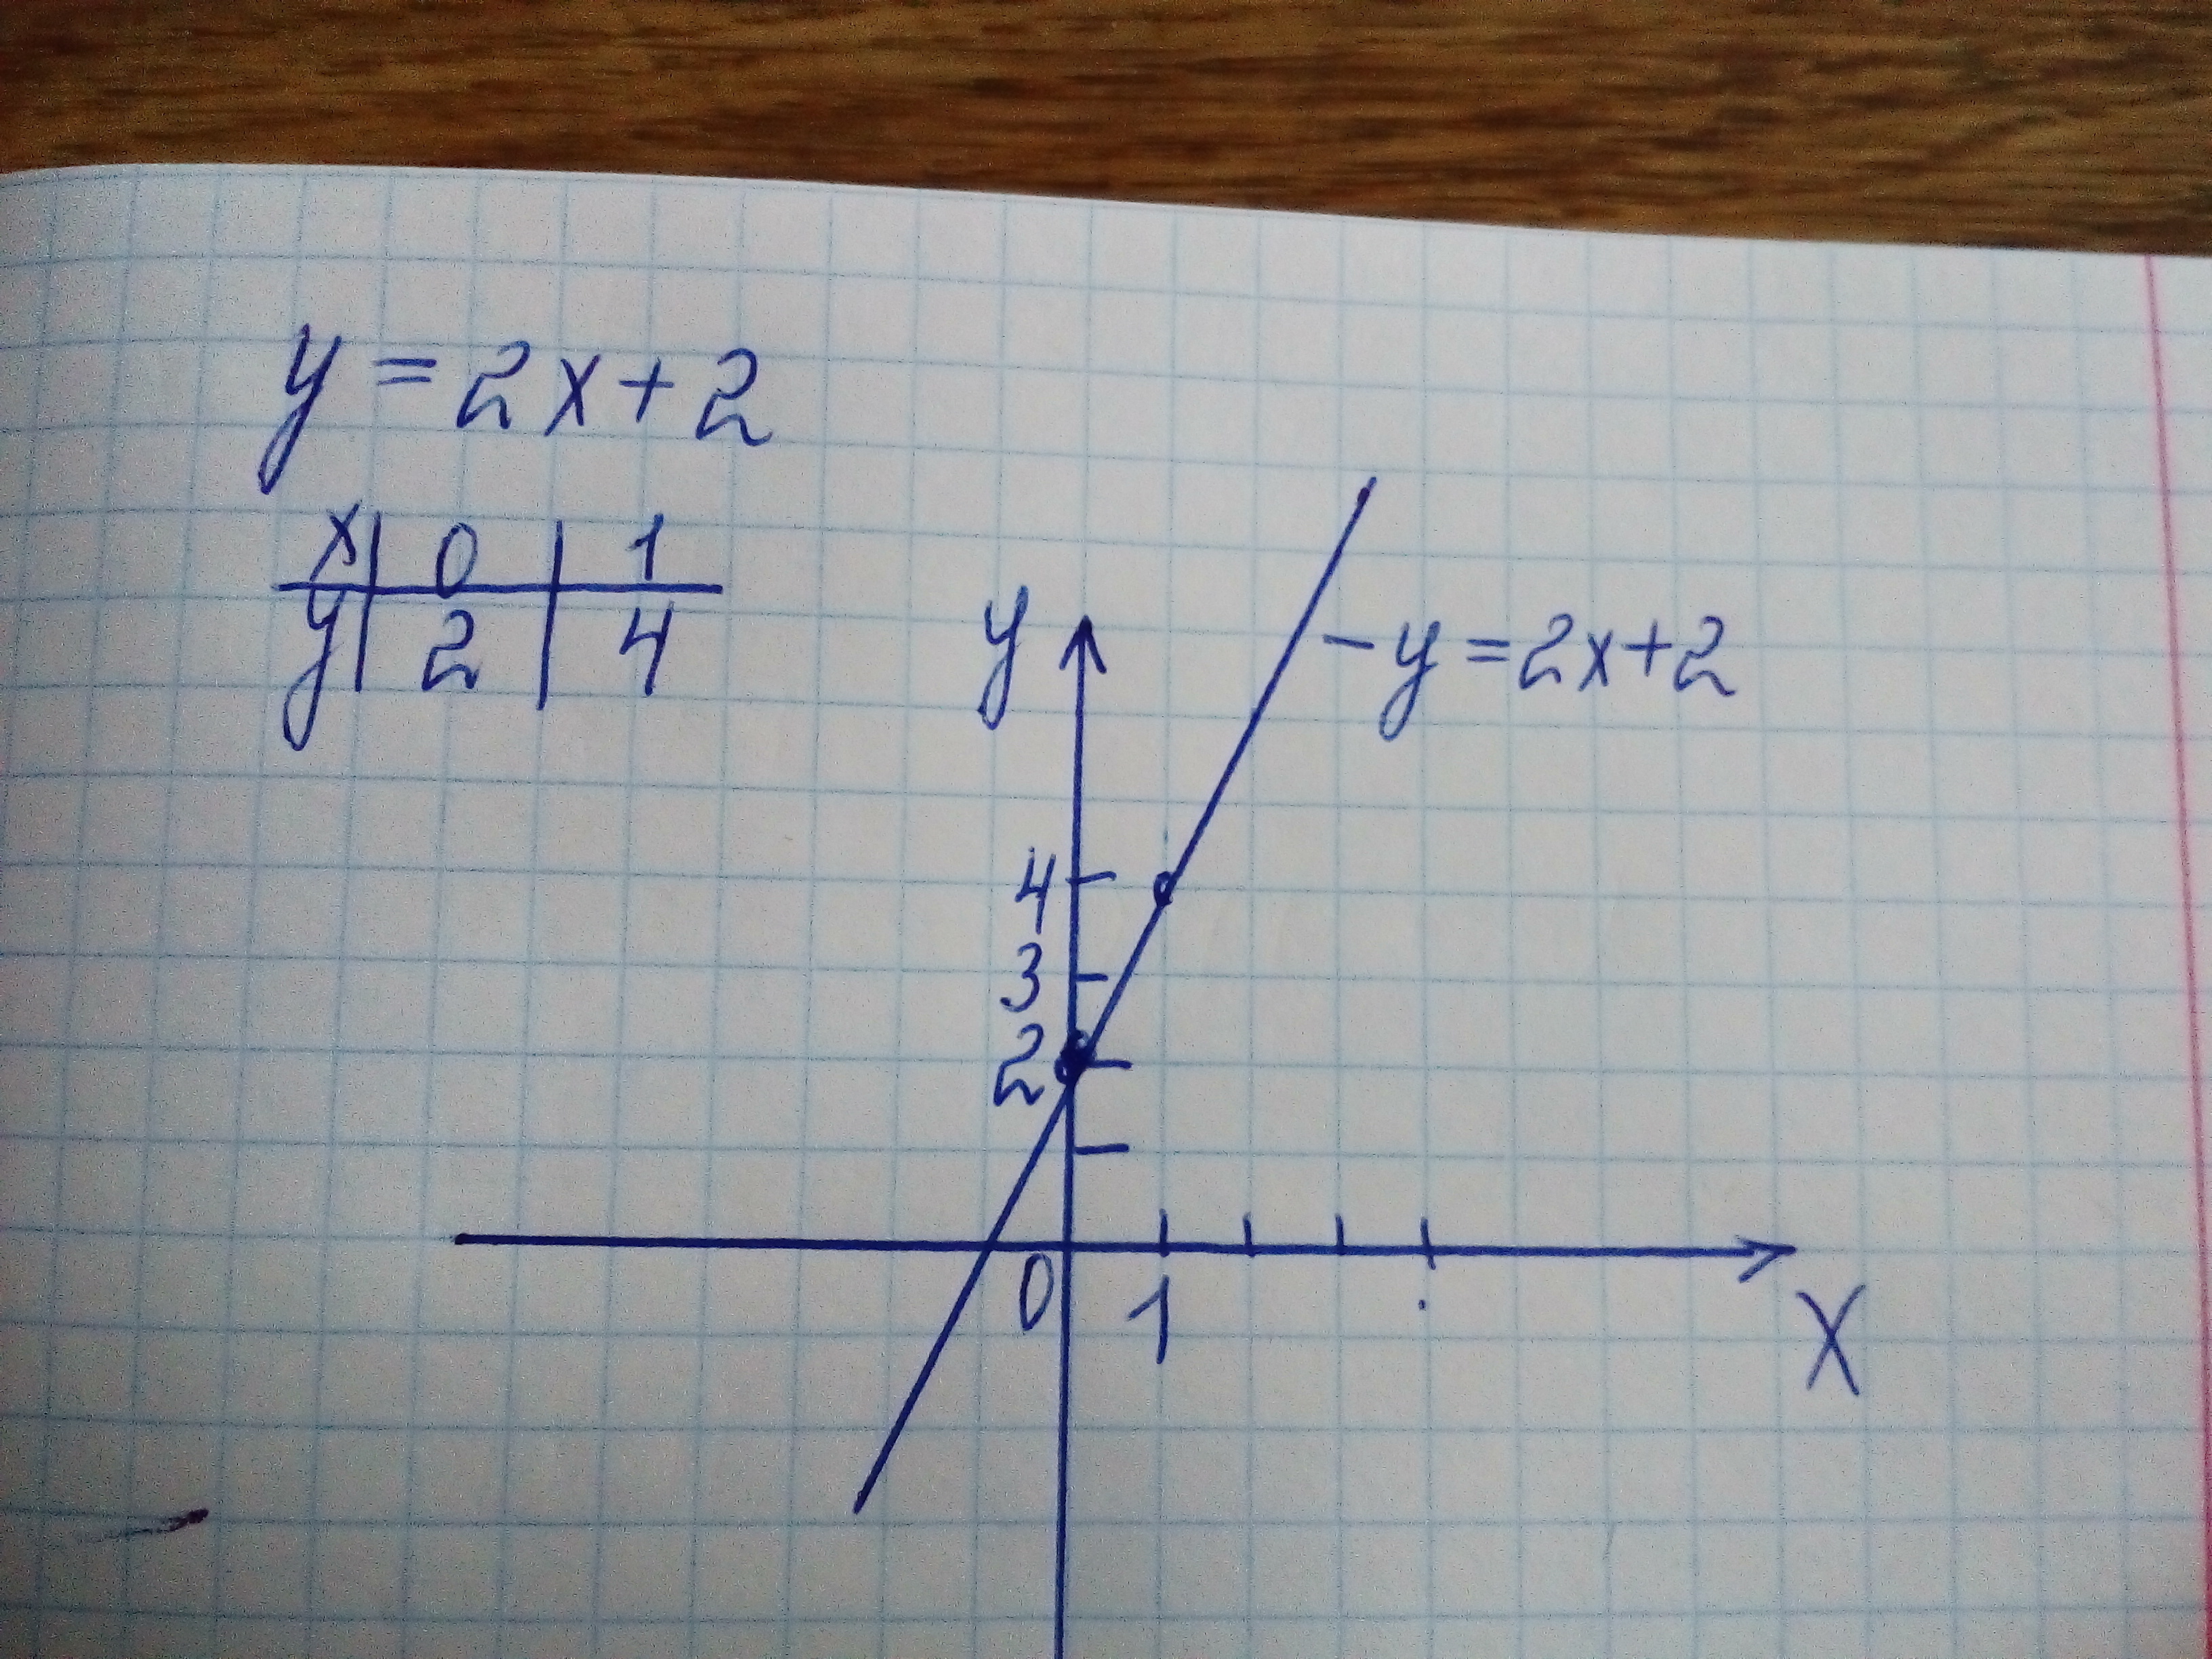 y = 2x + 2
x | 0 | 1
y | 2 | 4
y
– y = 2x + 2
4
3
2
0 1
X